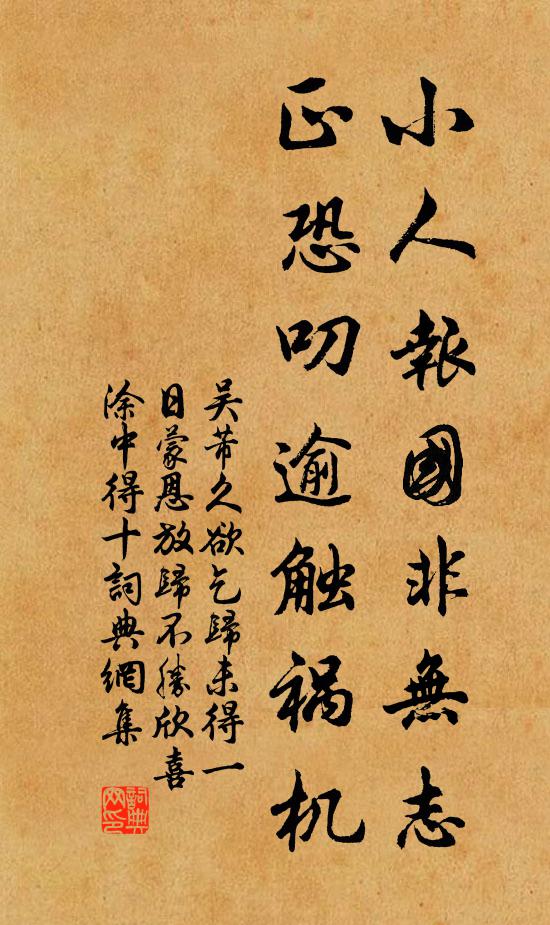 小人報國非無志
正恐叨逾触祸机
吴芾久欲乞歸未得一
日蒙恩放歸不勝欣喜
涂中得十詞典網集
詞典网印